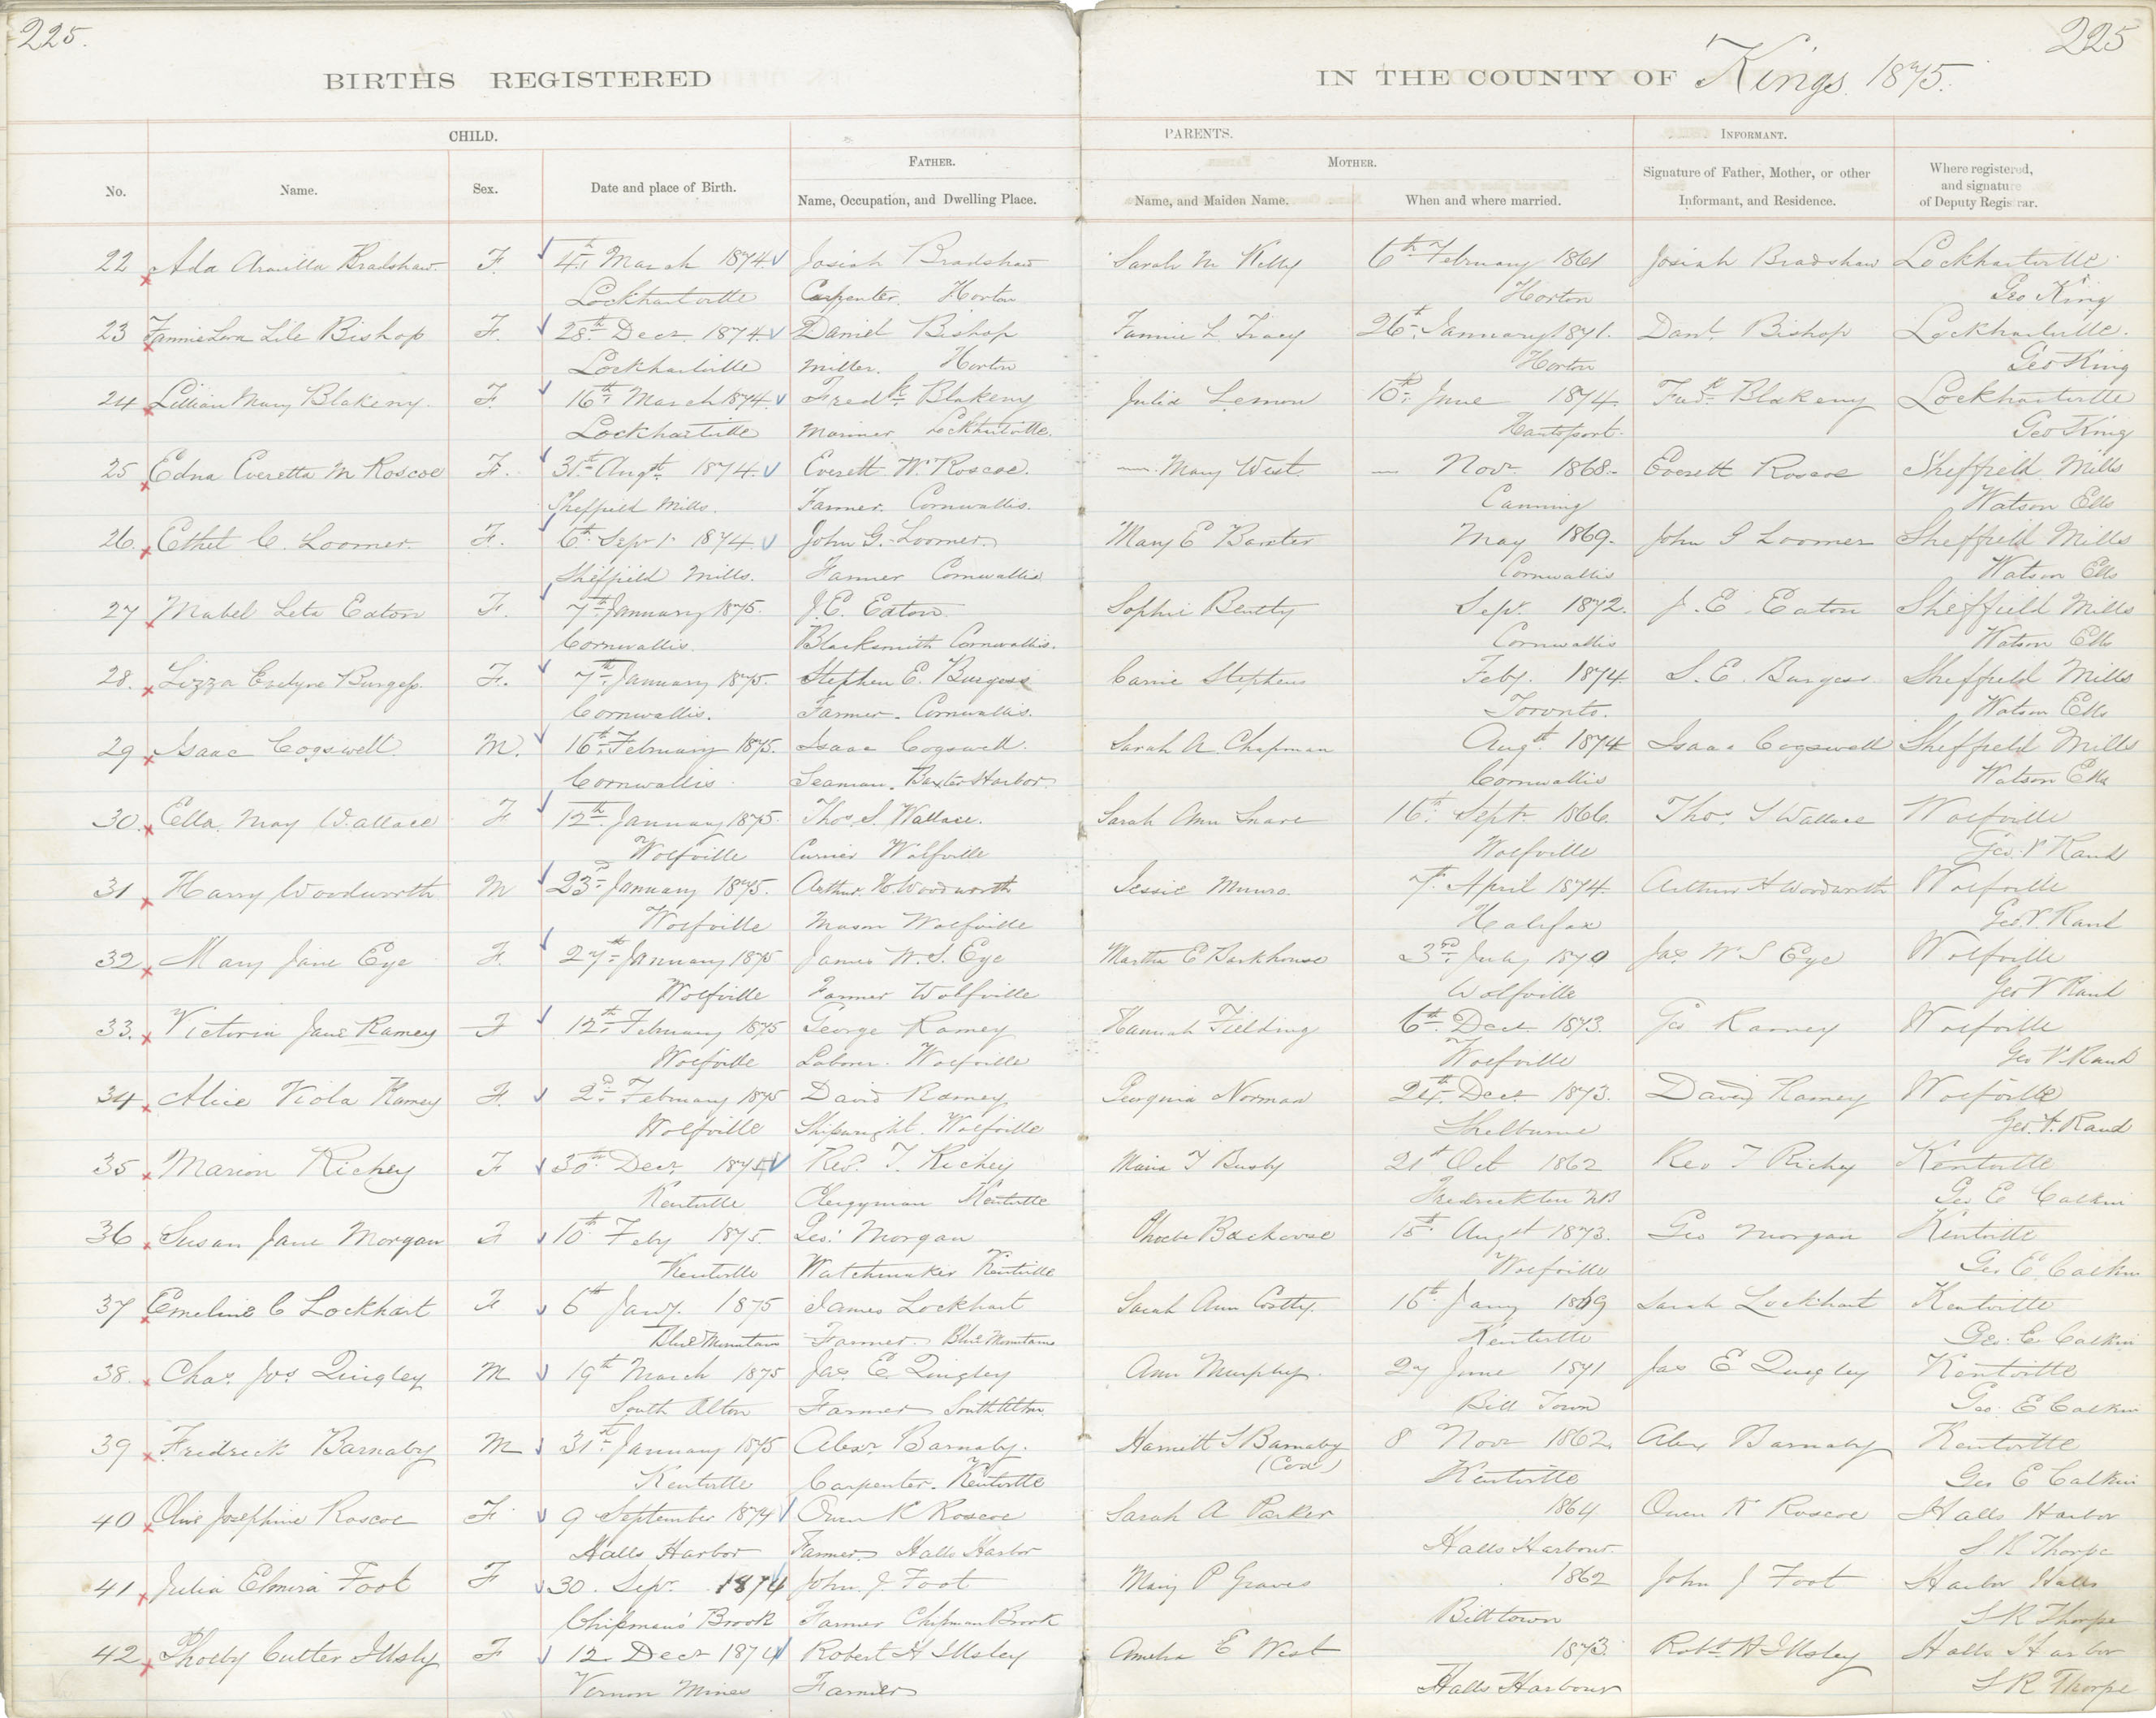 225.
225
BIRTHS REGISTERED
IN THE COUNTY OF Kings. 1875.
CHILD.
PARENTS.
INFORMANT.
FATHER.
MOTHER.
No.
Name.
Sex.
Date and place of Birth.
Name, Occupation, and Dwelling Place.
Name, and Maiden Name.
When and where married.
Signature of Father, Mother, or other
Informant, and Residence.
Where registered,
and signature
of Deputy Registrar.
22 Ada Bradshaw. F. 4th March 1874. Josiah Bradshaw Sarah M Kelly 6th February 1861 Josiah Bradshaw Lockhartville
Lockhartville Carpenter. Horton Horton Geo King
23 Bishop F. 28th Decr. 1874. Daniel Bishop Fannie L. Tracy 26th January 1871. Danl. Bishop Lockhartville.
Lockhartville Miller. Horton Horton Geo King
24 Lillian Mary Blakeny. F. 16th March 1874. Fredk Blakeny Julia Lemon June 1874. Fredk Blakeny Lockhartville
Lockhartville Mariner. Lockhartville. Hantsport. Geo King
25 Edna Everetta M Roscoe F. 31st Augst. 1874. Everett W. Roscoe. Mary West. — Novr 1868. Everett Roscoe Sheffield Mills
Sheffield Mills. Farmer. Cornwallis. Canning Watson Ells
26. Ethel C. Loomer. F. 6th Sept. 1874. John G. Loomer. Mary E Baxter May 1869. John G Loomer Sheffield Mills
Sheffield Mills. Farmer Cornwallis Cornwallis Watson Ells
27 Mabel Leta Eaton F. 7th January 1875. J. E. Eaton. Sophie Sept. 1872. J. E. Eaton Sheffield Mills
Cornwallis. Blacksmith Cornwallis. Cornwallis Watson Ells
28. Lizza Evelyne Burgess. F. 7th January 1875. Stephen E. Burgess Carrie Stephens Feby. 1874 S. E. Burgess. Sheffield Mills
Cornwallis. Farmer. Cornwallis. Toronto. Watson Ells
29 Isaac Cogswell. M. 16th February 1875. Isaac Cogswell. Sarah A. Chapman Augst. 1874 Isaac Cogswell Sheffield Mills
Cornwallis. Seaman. Baxter Harbor Cornwallis Watson Ells
30. Ella May Wallace F 12th January 1875. Thos. S. Wallace. Sarah Ann 16th Septr 1866. Thos. S Wallace Wolfville
Wolfville Currier Wolfville Wolfville Geo. V Rand
31 Harry Woodworth M 23rd January 1875. Arthur H Woodworth Jessie Munro. 7th April 1874. Arthur H Woodworth Wolfville
Wolfville Mason Wolfville Halifax Geo. V. Rand
32 Mary Jane Eye F. 27th January 1875 James W. S. Eye Martha E Barkhouse 3rd July 1870 Jas. W S Eye Wolfville
Wolfville Farmer Wolfville Wolfville Geo V Rand
33. Victoria Jane Ramey F 12th February 1875 George Ramey Hannah Fielding 6th Decr. 1873. Geo Ramey Wolfville
Wolfville Laborer. Wolfville Wolfville Geo V. Rand
34 Alice Viola Ramey F. 2nd February 1875 David Ramey Georgina Norman 24th Decr. 1873. David Ramey Wolfville
Wolfville Shipwright. Wolfville Shelburne Geo. V. Rand
35 Marion Richey F 30th Decr. 1874 Rev. T. Richey Maria T Busby 21st Oct 1862 Rev T Richey Kentville
Kentville Clergyman Kentville Fredrickton NB Geo E Calkin
36 Susan Jane Morgan F 10th Feby 1875. Geo. Morgan Phoebe Augst 1873. Geo Morgan Kentville
Kentville Watchmaker Kentville Wolfville Geo. E. Calkin
37 Emeline C Lockhart F 6th Jany. 1875 James Lockhart Sarah Ann 16th Jany 1869 Sarah Lockhart Kentville
Blue Mountain Farmer. Blue Mountain Kentville Geo. E. Calkin
38. Chas. Jos. Quigley M 19th March 1875 Jas. E. Quigley Ann Murphy. 27 June 1871 Jas E Quigley Kentville
South Alton Farmer South Alton. Bill Town Geo. E Calkin
39 Fredrick Barnaby M 31st January 1875 Alexr Barnaby. Harriett S Barnaby 8 Novr 1862. Alex Barnaby Kentville
(Cox)
Kentville Carpenter. Kentville Kentville Geo E Calkin
40 Olive Josephine Roscoe F 9 September 1874 Owen K Roscoe Sarah A Parker 1864 Owen K Roscoe Halls Harbor
Halls Harbor Farmer Halls Harbor Halls Harbour. S R Thorpe
41 Julia Elmira Foot F 30. Sepr. 1874 John J. Foot Mary P Graves 1862 John J Foot Harbor Halls
Chipman's Brook Farmer Chipman Brook Billtown S R Thorpe
42 Phoeby Cutter Illsly F 12. Decr 1874 Robert H Illsley Amelia E West 1873. Robt H Illsley Halls Harbor
Vernon Mines Farmer Halls Harbour S R Thorpe